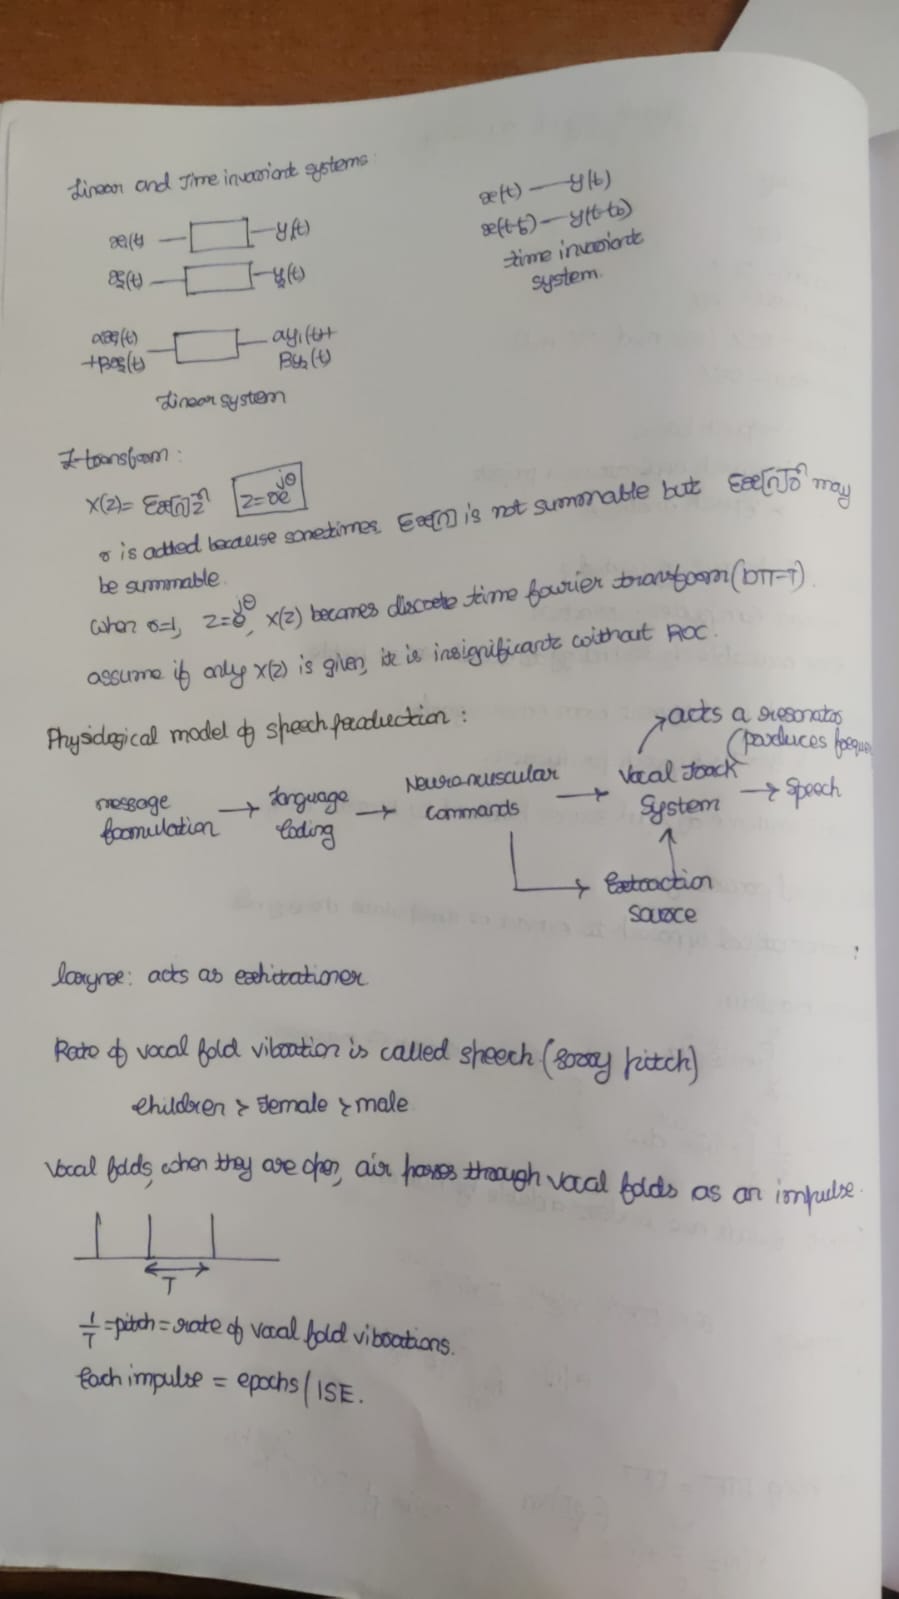 Linear and Time invariant systems:
x1(t) y(t)
x2(t) y2(t)
αx1(t) αy1(t)+
+βx2(t) βy2(t)
Linear system
x(t) — y(t)
x(t-t0) — y(t-t0)
time invariant
system.
Z-transform:
X(z)= Σx[n]z^-n z=re^jθ
r is added because sometimes Σx[n] is not summable but Σx[n]r^-n may
be summable.
when r=1, z=e^jθ, X(z) becomes discrete time fourier transform (DTFT).
assume if only X(z) is given, it is insignificant without ROC.
Physiological model of speech production:
acts a resonator
(produces
message → language → Neuromuscular → Vocal Track → Speech
formulation Coding commands System
source
larynx: acts as
Rate of vocal fold vibration is called speech (sorry pitch)
children > female > male
Vocal folds, when they are open, air passes through vocal folds as an impulse.
T
1/T = pitch = rate of vocal fold vibrations.
Each impulse = epochs / ISE.